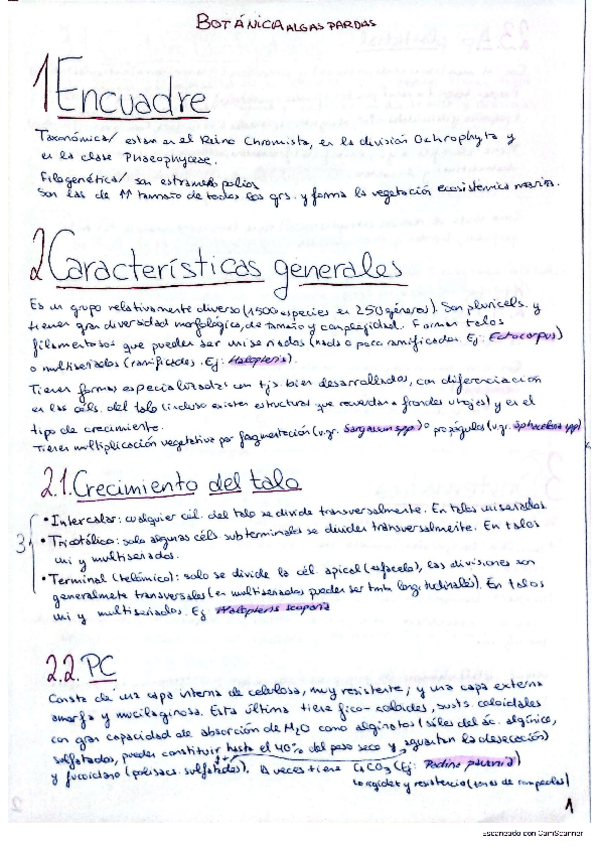 BOTÁNICA ALGAS PARDAS
1 Encuadre
Taxonómica/ estan en el Reino Chromista, en la división Ochrophyta y
en la clase Phaeophyceae.
Filogenética/ son estramenopolios
Son las de ↑↑ tamaño de todos los grs. y forma la vegetación ecosistémica marina.
2 Características generales
Es un grupo relativamente diverso (1500 especies en 250 géneros). Son pluricels. y
tienen gran diversidad morfológica, de tamaño y complejidad. Forman talos
filamentosos que pueden ser uniseriados (nada o poco ramificados. Ej: Ectocarpus)
o multiseriados (ramificados. Ej: Halopteris).
Tienen formas especializadas con tjs. bien desarrollados, con diferenciación
en las céls. del talo (incluso existen estructuras que recuerdan a frondes u hojas) y en el
tipo de crecimiento.
Tienen multiplicación vegetativa por fragmentación (v.gr. Sargassum spp.) o propágulos (v.gr. Sphacelaria spp)
2.1. Crecimiento del talo
3
• Intercalar: cualquier cél. del talo se divide transversalmente. En talos uniseriados.
• Tricotálico: solo algunas céls subterminales se dividen transversalmente. En talos
uni y multiseriados.
• Terminal (telómico): solo se divide la cél. apical (esfacelo), las divisiones son
generalmente transversales (en multiseriados pueden ser tmbn longitudinales). En talos
uni y multiseriados. Ej Halopteris scoparia
2.2. PC
Consta de una capa interna de celulosa, muy resistente, y una capa externa
amorfa y mucilaginosa. Esta última tiene fico-coloides, susts. coloidales
con gran capacidad de absorción de H2O como alginatos (sales del ác. algínico,
sulfatados, pueden constituir hasta el 40% del peso seco y aguantan la desecación)
y fucoidano (polisacs. sulfatados). A veces tiene CaCO3 (Ej: Padina pavonia)
rigidez y resistencia (zonas de rompeolas)
1
Escaneado con CamScanner